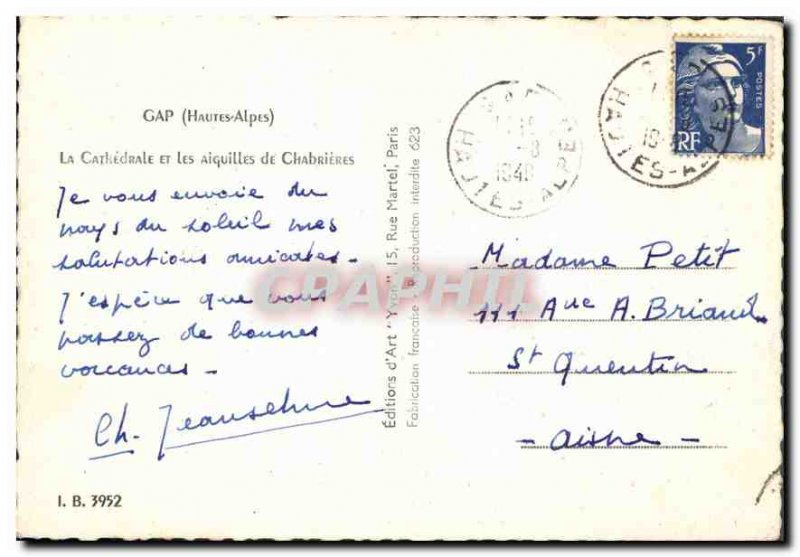 GAP (HAUTES-ALPES)
LA CATHÉDRALE ET LES AIGUILLES DE CHABRIÈRES
Je vous envoie du
pays du soleil mes
salutations amicales -
J'espère que vous
passez de bonnes
vacances -
Ch.
I. B. 3952
Éditions d'Art "Yvon", 15, Rue Martel, Paris
Fabrication française - Reproduction interdite 623
GAP
HAUTES-ALPES
HAUTES-ALPES
5F
POSTES
RF
Madame Petit
111 Ave A. Briand
St Quentin
- Aisne -
CPAPHIL